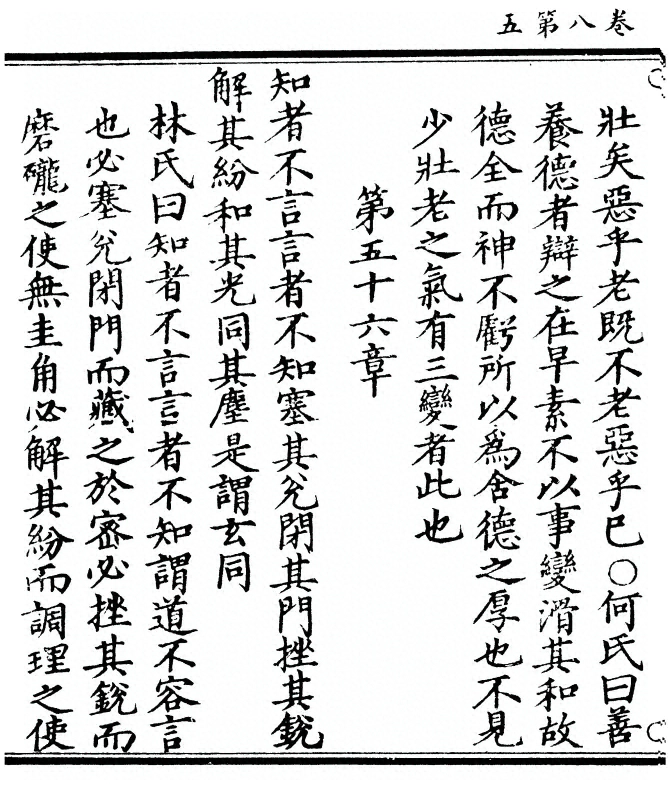 卷八第五
壯矣惡乎老既不老惡乎已○何氏曰善
養德者辯之在早素不以事變滑其和故
德全而神不虧所以爲含德之厚也不見
少壯老之氣有三變者此也
第五十六章
知者不言言者不知塞其兊閉其門挫其銳
解其紛和其光同其塵是謂玄同
林氏曰知者不言言者不知謂道不容言
也必塞兊閉門而藏之於密必挫其銳而
磨礲之使無圭角必解其紛而調理之使